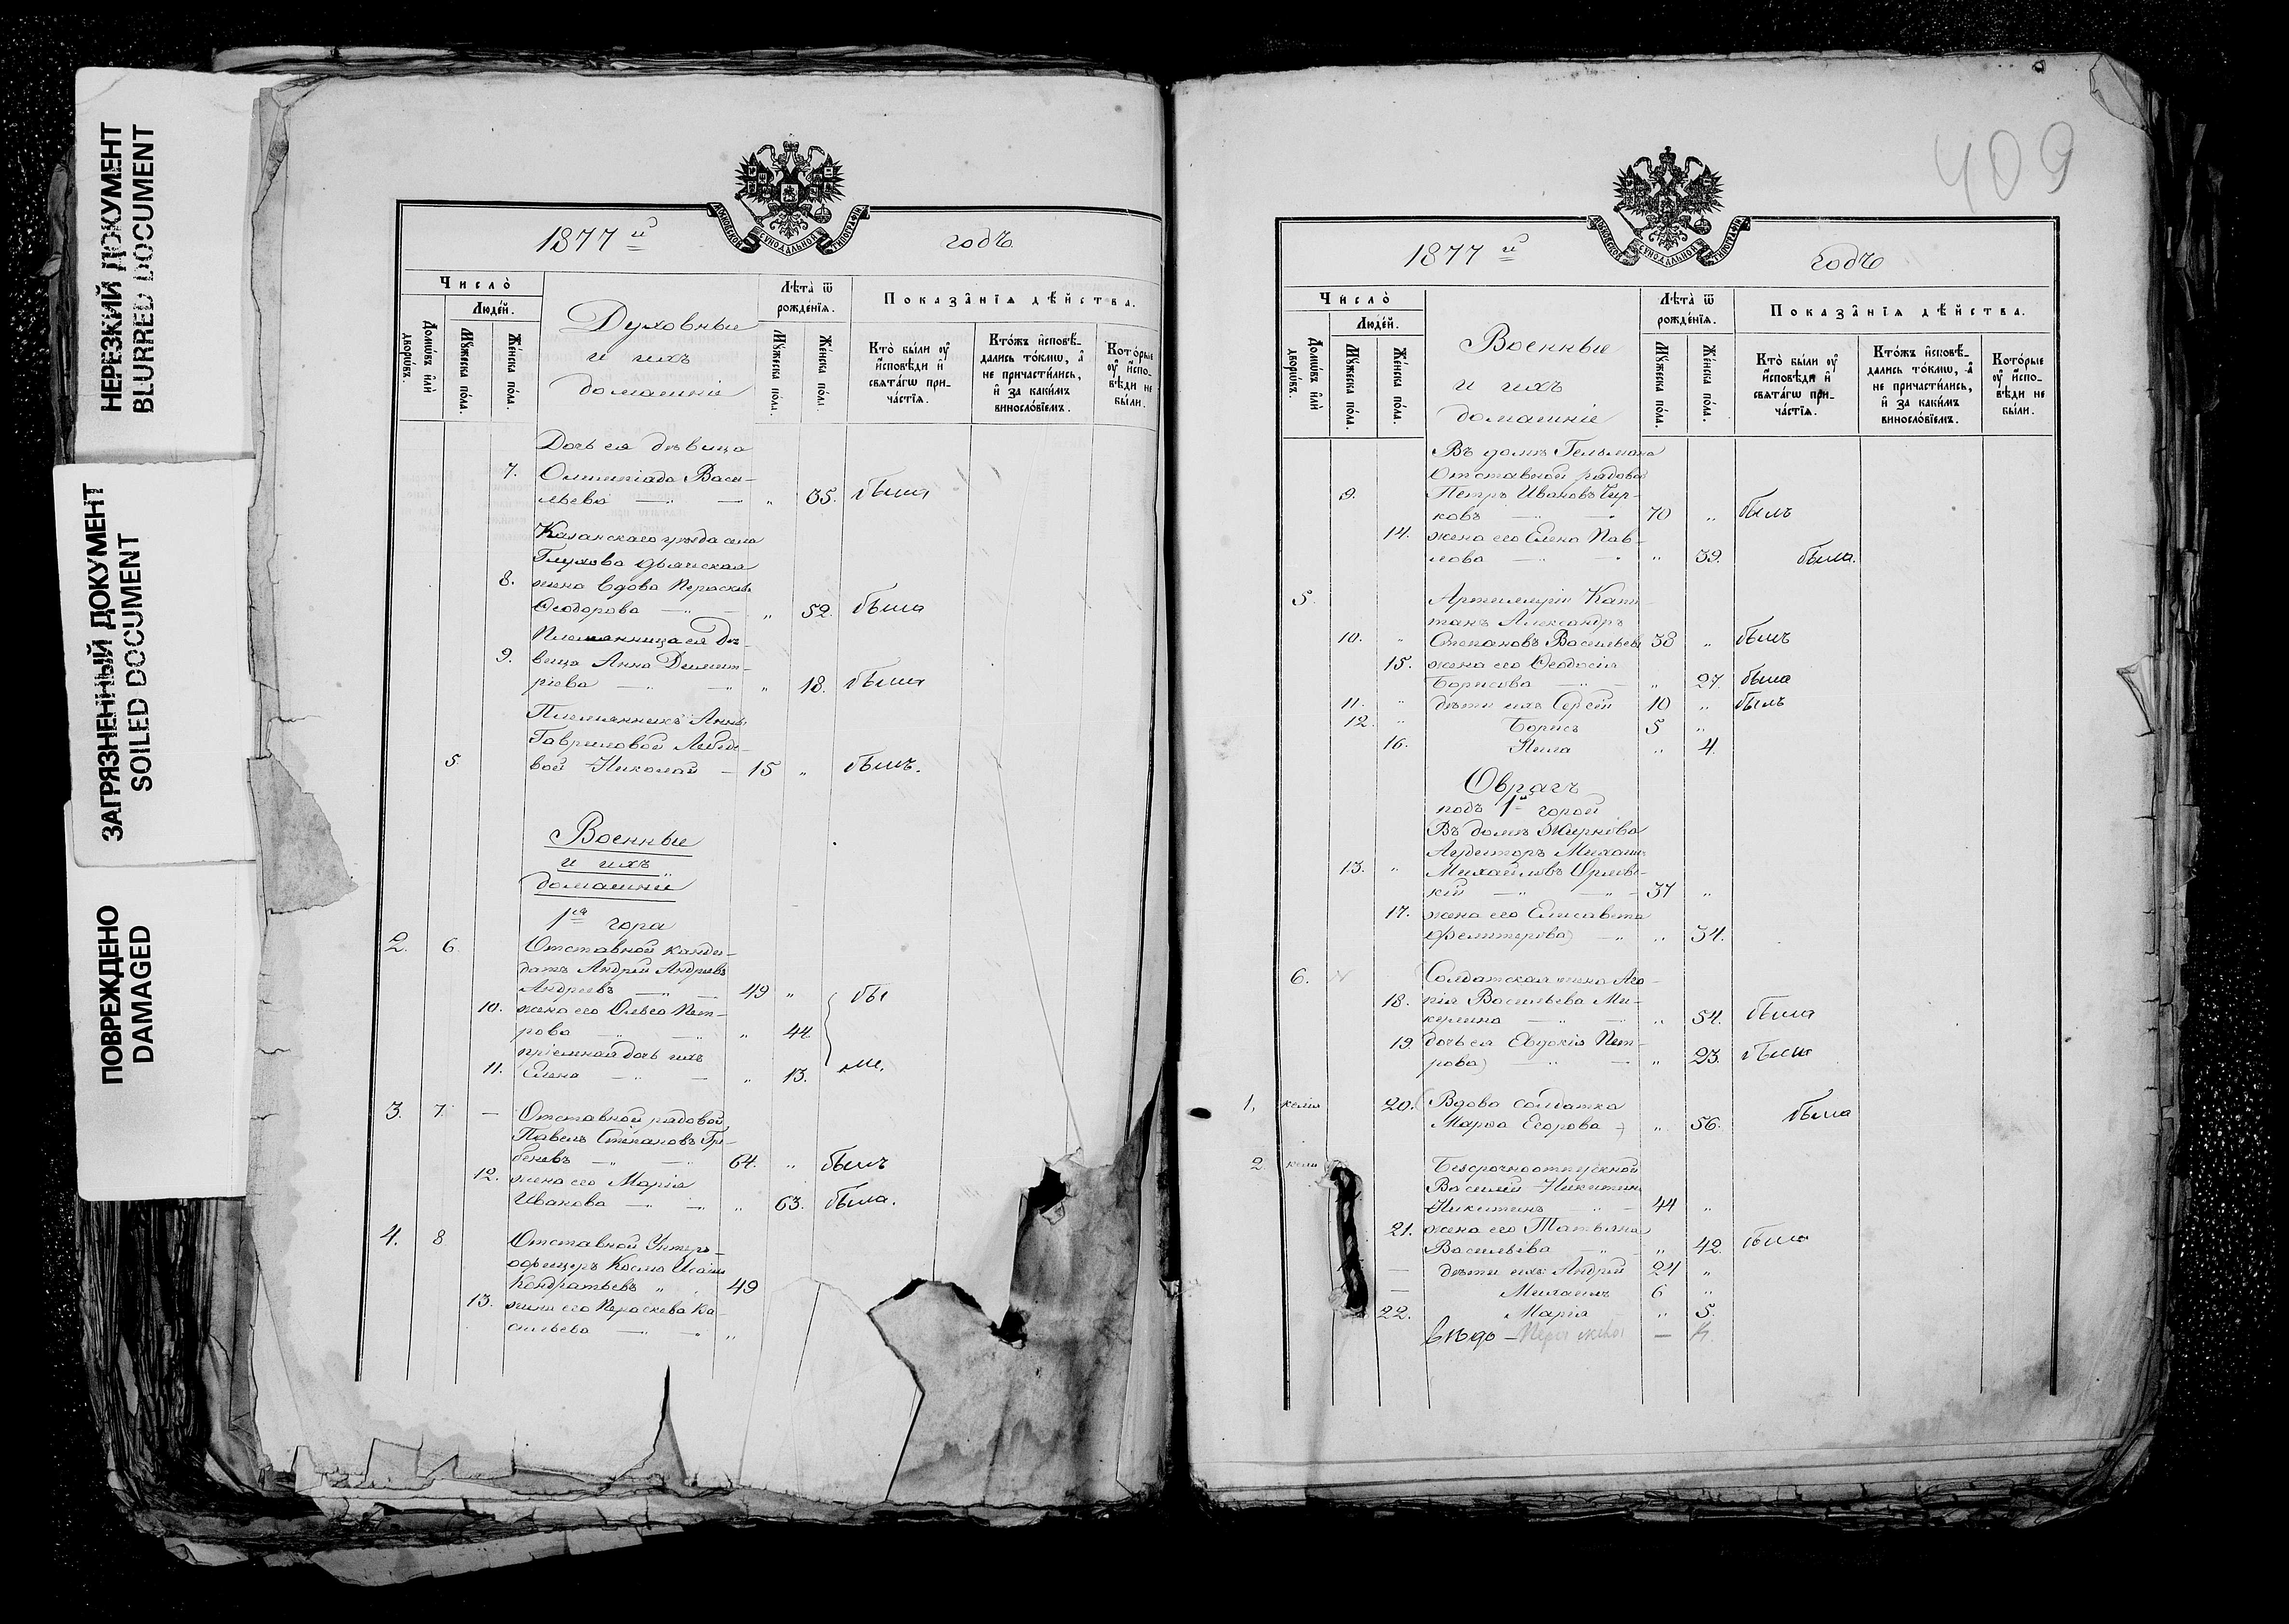 НЕРЕЗКИЙ ДОКУМЕНТ
BLURRED DOCUMENT
ЗАГРЯЗНЕННЫЙ ДОКУМЕНТ
SOILED DOCUMENT
ПОВРЕЖДЕНО
DAMAGED
МОСКОВСКОЙ СУНОДАЛЬНОЙ ТИПОГРАФІИ
1877 й годъ
Число̀
Людей.
Домѡвъ и҆лѝ дворѡвъ.
Мꙋжеска пола.
Женска пола.
Духовные
и ихъ
домашніе
Лѣта ѿ рожденїѧ.
Мꙋжеска пола.
Женска пола.
Показанїѧ дѣйства.
Кто̀ были ᲂу҆ исповѣди и҆ свѧтагѡ при-
частїѧ.
Ктожъ исповѣ-
дались токмѡ, а҆
не причастились,
и҆ за какимъ
винословїемъ.
Которые
ᲂу҆ испо-
вѣди не
были.
Дочь ея дѣвица
7. Олимпіада Васи-
льева — " 35. была
Казанскаго уѣзда села
Глухова дьяческая
8. жена вдова Параскева
Ѳеодорова — " 52. была
Племянница ея дѣ-
9. вица Анна Димит-
ріева — " 18. была
Племянникъ Анны
Гавриловой Лебеде-
5 вой Николай — 15 " былъ.
Военные
и ихъ
домашніе
1ая гора
2. 6. Отставной канди-
датъ Андрей Андреевъ
Андреевъ — 49 " бы
10. жена его Ольга Пет-
рова — " 44
пріемная дочь ихъ
11. Елена — " 13. ли.
3. 7. — Отставной рядовой
Павелъ Степановъ Гре-
бневъ — 64. " былъ
12. жена его Марія
Иванова — " 63. была.
4. 8 Отставной Унтеръ-
офицеръ Косма
Кондратьевъ " 49
13. жена его Параскева Ва-
сильева — "
409
МОСКОВСКОЙ СУНОДАЛЬНОЙ ТИПОГРАФІИ
1877 й годъ
Число̀
Людей.
Домѡвъ и҆лѝ дворѡвъ.
Мꙋжеска пола.
Женска пола.
Военные
и ихъ
домашніе
Лѣта ѿ рожденїѧ.
Мꙋжеска пола.
Женска пола.
Показанїѧ дѣйства.
Кто̀ были ᲂу҆ исповѣди и҆ свѧтагѡ при-
частїѧ.
Ктожъ исповѣ-
дались токмѡ, а҆
не причастились,
и҆ за какимъ
винословїемъ.
Которые
ᲂу҆ испо-
вѣди не
были.
Въ домѣ Гельмана
Отставной рядовой
9. Петръ Ивановъ Чир-
ковъ — 70 " былъ
14. жена его Елена Пав-
лова — " 39. была.
5. Артиллеріи Капи-
танъ Александръ
10. " Степановъ Васильевъ 38 " былъ
15. жена его Ѳеодосія
Борисова — " 27. была
11. " дѣти ихъ Сергѣй 10 " былъ
12. " Борисъ 5 "
16. Нила " 4.
Оврагъ
подъ 1й горой
Въ домѣ Жиркова
Аудиторъ Михаилъ
13. " Михайловъ Орлов-
кій — 37 "
17. жена его Елисавета
— " 34.
6. Солдатская жена Ага-
18. пія Васильева Ми-
— " 54. была
19. дочь ея Евдокія Пет-
рова — " 23. была
1. келія 20. Вдова солдатка
Марѳа Егорова — " 56. была
2. келія Безсрочноотпускной
Василій Никитинъ
Никитинъ — 44 "
21. жена его Татьяна
Васильева — " 42. была
— дѣти ихъ: Андрей 24 "
— Михаилъ 6 "
22. Марія " 5.